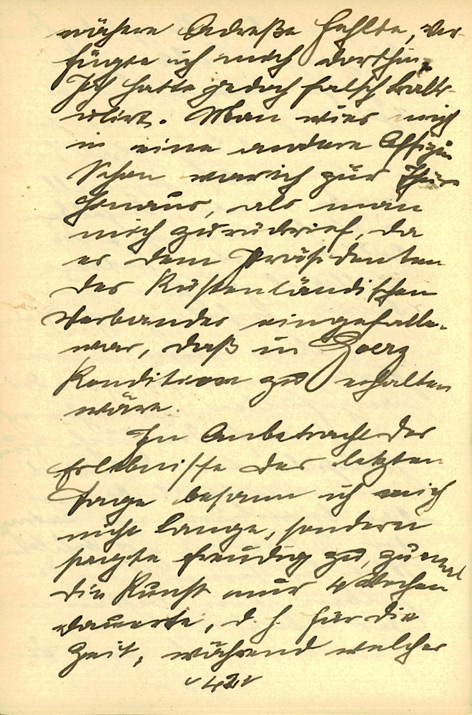 nähere Adreße fehlte, ver-
fügte ich mich dorthin.
Ich hatte jedoch falsch kalk-
ulirt. Man wies mich
in eine andere Offizin
Schon war ich zur Thür
hinaus, als man
mich zurückrief, da
es dem Präsidenten
des Küstenländischen
Verbandes eingefallen
war, daß in Goerz
Kondition zu erhalten
wäre.
In Anbetracht der
Erlebnisse der letzten
Tage besann ich mich
nicht lange, sondern
sagte freudig zu zumal
die Kunst nur 4 Wochen
dauerte, d. h. für die
Zeit, während welcher
"42"